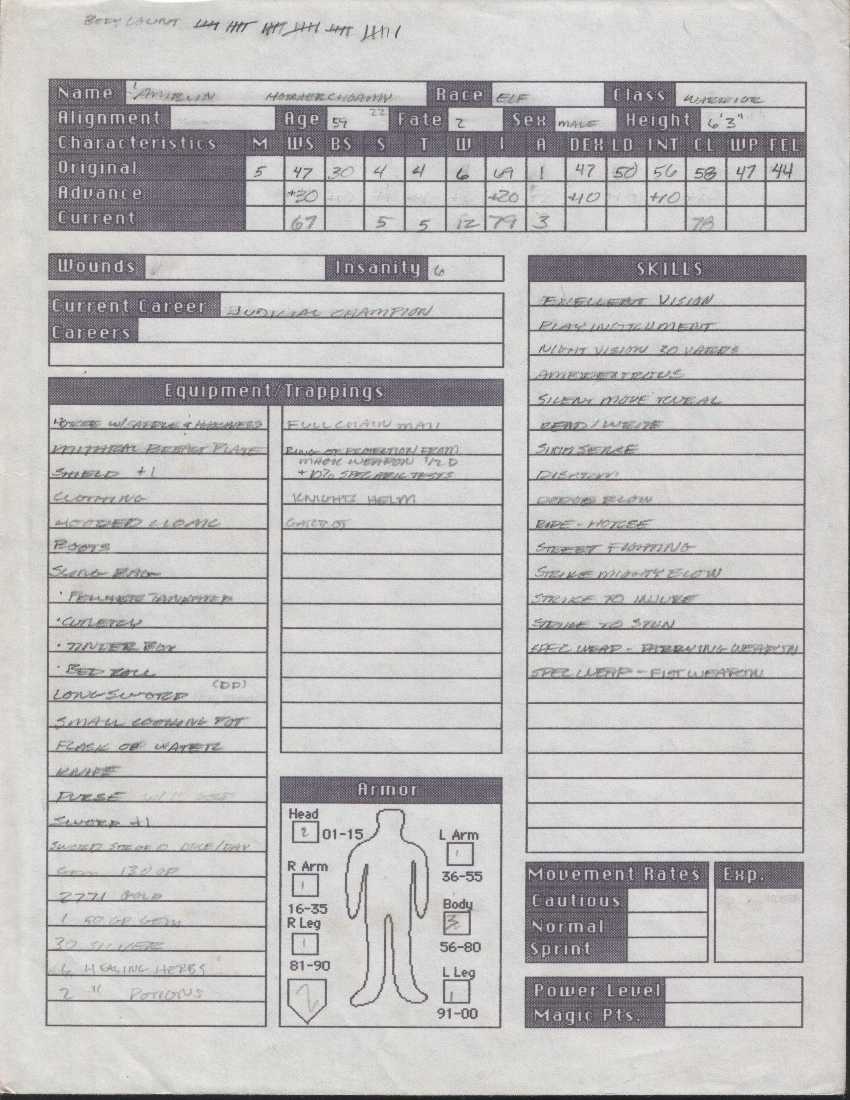 BODY COUNT
Name AMIRLIN Race ELF Class WARRIOR
Alignment Age 59 22 Fate 2 Sex MALE Height 6'3"
Characteristics M WS BS S T W I A DEX LD INT CL WP FEL
Original 5 47 30 4 4 6 69 1 47 50 56 58 47 44
Advance +30 +20 +10 +10
Current 67 5 5 12 79 3 78
Wounds Insanity 6
Current Career JUDICIAL CHAMPION
Careers
Equipment/Trappings
HORSE W/SADDLE & HARNESS
MITHRAL BREAST PLATE
SHIELD +1
CLOTHING
HOODED CLOAK
BOOTS
SLING BAG
• PEWTER TANKARD
• CUTLERY
• TINDER BOX
• BED ROLL
LONG SWORD (DD)
SMALL COOKING POT
FLASK OF WATER
KNIFE
PURSE
SWORD +1
GEM 130 GP
2771 GOLD
1 50 GP GEM
30 SILVER
6 HEALING HERBS
2 " POTIONS
FULL CHAIN MAIL
RING OF PROTECTION FROM
MAGIC WEAPON 1/2 D
+10% SPEC MAGIC TESTS
KNIGHTS HELM
SKILLS
EXCELLENT VISION
PLAY INSTRUMENT
NIGHT VISION 30 YARDS
AMBIDEXTROUS
SILENT MOVE RURAL
READ/WRITE
SIXTH SENSE
DISARM
DODGE BLOW
RIDE - HORSE
STREET FIGHTING
STRIKE MIGHTY BLOW
STRIKE TO INJURE
STRIKE TO STUN
SPEC WEAP - PARRYING WEAPON
SPEC WEAP - FIST WEAPON
Armor
Head 2 01-15
R Arm 1 16-35
R Leg 1 81-90
2
L Arm 1 36-55
Body 3 56-80
L Leg 1 91-00
Movement Rates Exp.
Cautious
Normal
Sprint
Power Level
Magic Pts.